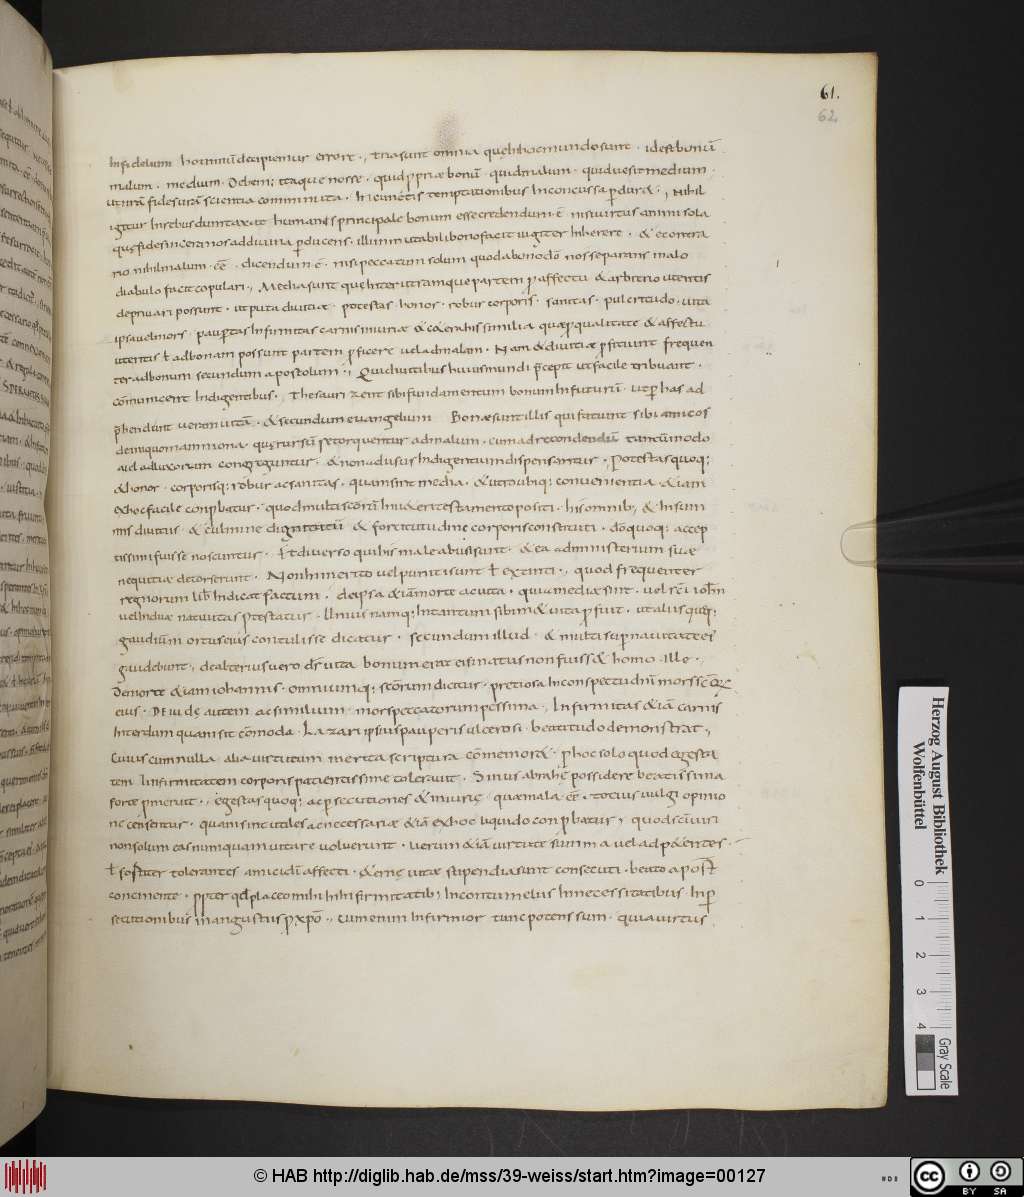 61.
62
Infidelium hominū decipiemur errore. Tria sunt omnia quę in hoc mundo sunt. id est bonū
malum. medium. Debem; itaque nosse. quid pprie bonū. quid malum. quid uel sit medium
ut nrām fides uerā scientia communita. In cunctis temptationibus inconcussa pduret. Nihil
igitur in rebus dumtaxat humanis principale bonum esse credendum ē. nisi uirtus animi sola
quę fide sincera nos ad diuina pducens. illi inmutabili bono facit iugiter inherere. & e contra
rio nihil malum eē. dicendum ē. nisi peccatum solum quod a bono dō nos separans malo
diabulo facit copulari. Media sunt que inter utramque partem p affectu & arbitrio utentis
deriuari possunt. ut puta diuitiæ. potestas. honor. robur corporis. sanitas. pulcritudo. uita
ipsa uel mors. paupertas infirmitas carnis iniuriæ & cetera his similia quæ p qualitate & affectu
utentis ł ad bonam possunt partem pficere uel ad malam. Nam & diuitiæ pficiunt frequen
ter ad bonum secundum apostolum. Qui diuitibus huius mundi pcepit ut facile tribuant.
cōmunicent indigentibus. Thesaurizent sibi fundamentum bonum in futurū. ut p has ad
phendant ueram uitā. & secundum euangelium Bonæ sunt illis qui faciunt sibi amicos
de iniquo mammona. quę rursū retorquentur ad malum. cum ad recondendū tantū modo
aut ad luxoriam congreguntur. & non ad usus indigentium dispensantur. Potestas quoq;
& honor. corporisq; robur ac sanitas. quam sint media. & utroubiq; conuenientia. & iam
ex hoc facile conpbatur. quod multi scōrū in uet testamento positi. his omnib; & in sum
mis diuitiis. & culmine dignitatū & fortitudine corporis constituti. dō quoq; accep
tissimi fuisse noscuntur. Et diuerso qui his male abusi sunt. & ea ad ministerium suæ
nequitiæ detorserunt. Non inmerito uel puniti sunt ł extincti. quod frequenter
regnorum lib indicat factum. de ipsa & iā morte ac uita. quia mediæ sint. uel scī iohn
uel iudæ natiuitas ptestatur. Unius namq; in tantum sibimet uita pfuit. ut aliis quoq;
gaudium ortus eius contulisse dicatur. secundum illud. & multi sup natiuitate ei
gaudebunt. de alterius uero dr̄ uita bonum erat ei si natus non fuisset homo ille.
De morte & iam iohannis. omniumq; scōrum dicitur. pretiosa in conspectu dnī mors scōr
eius. De iudę autem ac similium. mors peccatorum pessima. Infirmitas & iā carnis
interdum quam sit cōmoda. Lazari ipsius pauperis ulcerosi. beatitudo demonstrat.
Cuius cum nulla alia uirtutum merita scriptura cōmemoret. p hoc solo quod egesta
tem Infirmitatem corporis patientissime tolerauit. Sinus abrahę possidere beatissima
sorte pmeruit. egestas quoq; ac psecutiones & iniurię quæ mala eē. totius uulgi opinio
ne censentur. quam sint utiles ac necessariæ & iā ex hoc liquido conpbatur. quod scī uiri
non solum eas numquam uitare uoluerunt. uerum & iā uirtute summa uel adpetentes.
ł fortiter tolerantes amici dī affecti. & ęternę uitæ stipendia sunt consecuti. beato apost
concinente. ppter qd placeo mihi in infirmitatib; In contumeliis In necessitatibus In p
secutionibus in angustiis p xpō. Cum enim infirmior tunc potens sum. quia uirtus
Herzog August Bibliothek
Wolfenbüttel
0 1 2 3 4
Gray Scale
© HAB http://diglib.hab.de/mss/39-weiss/start.htm?image=00127
cc BY SA